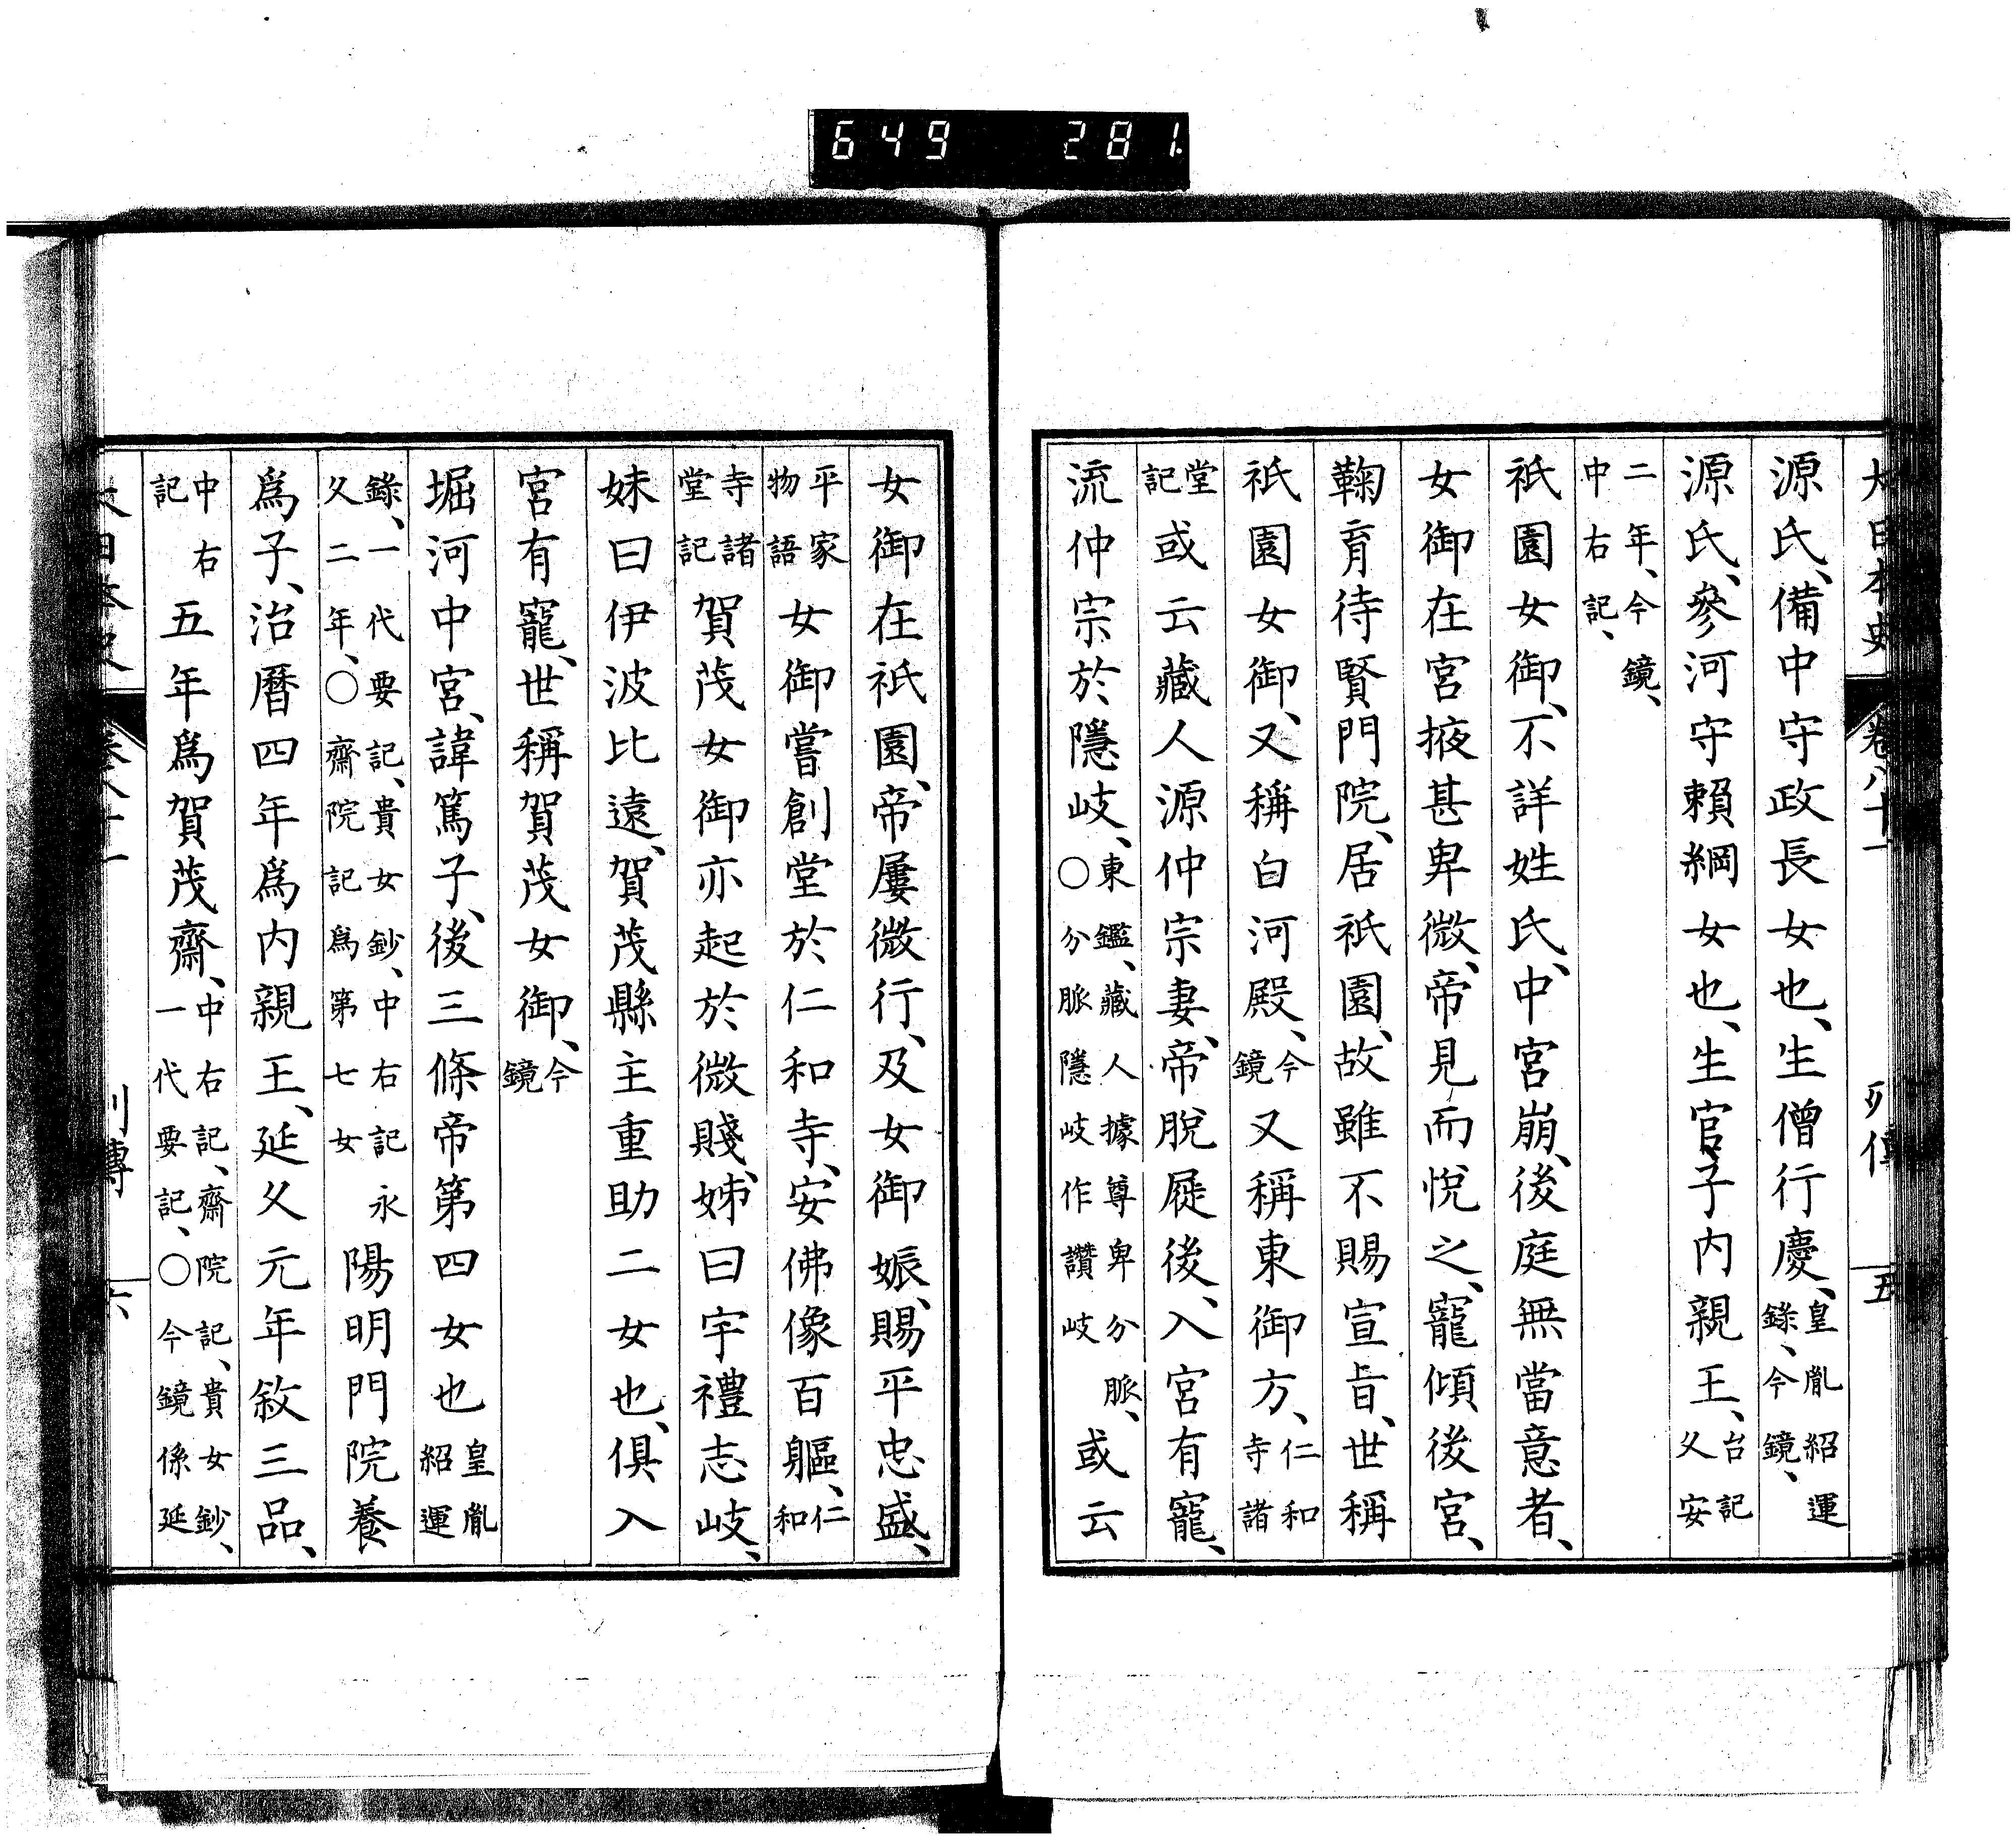 649 281.
大日本史 卷八十一 列傳 五
源氏、備中守政長女也、生僧行慶、皇胤紹運錄、今鏡、
源氏、參河守賴綱女也、生官子內親王、台記久安
二年、今鏡、中右記、
祇園女御、不詳姓氏、中宮崩、後庭無當意者、
女御在宮掖甚卑微、帝見而悅之、寵傾後宮、
鞠育待賢門院、居祇園、故雖不賜宣旨、世稱
祇園女御、又稱白河殿、今鏡又稱東御方、仁和寺諸
堂記或云藏人源仲宗妻、帝脫屣後、入宮有寵、
流仲宗於隱岐、東鑑、藏人據尊卑分脈、○分脈隱岐作讚岐或云
女御在祇園、帝屢微行、及女御娠、賜平忠盛、
平家物語女御嘗創堂於仁和寺、安佛像百軀、仁和
寺諸堂記賀茂女御亦起於微賤、姊曰宇禮志岐、
妹曰伊波比遠、賀茂縣主重助二女也、俱入
宮有寵、世稱賀茂女御、今鏡
堀河中宮、諱篤子、後三條帝第四女也皇胤紹運
錄、一代要記、貴女鈔、中右記永久二年、○齋院記爲第七女陽明門院養
爲子、治曆四年爲內親王、延久元年敘三品、
中右記五年爲賀茂齋、中右記、齋院記、貴女鈔、一代要記、○今鏡係延
大日本史 卷八十一 列傳 六